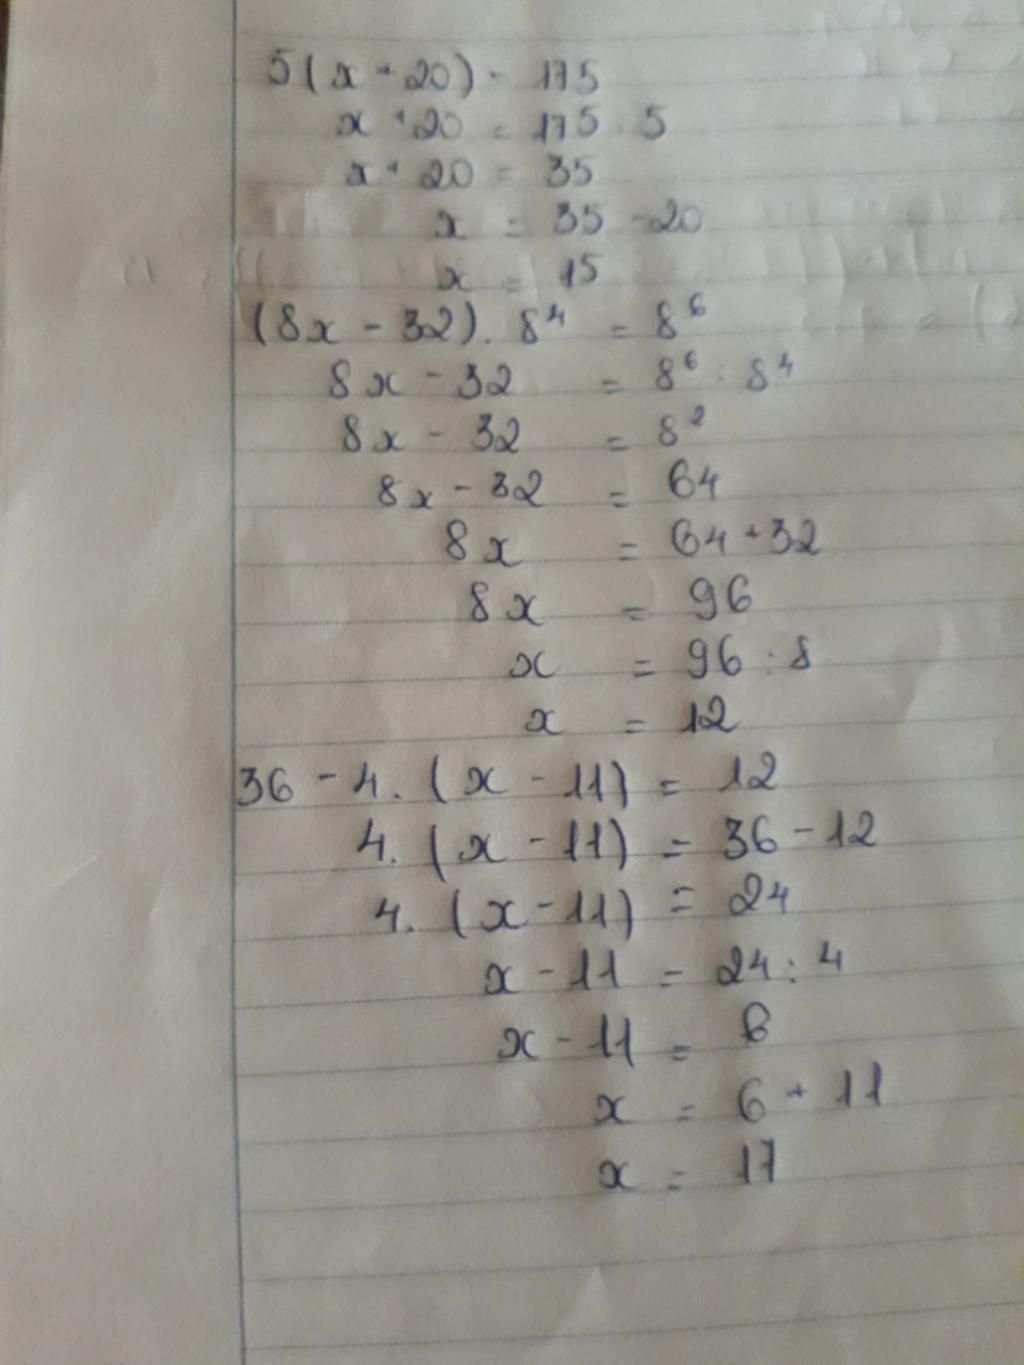 5(x + 20) = 175
x + 20 = 175 : 5
x + 20 = 35
x = 35 - 20
x = 15
(8x - 32) . 8⁴ = 8⁶
8x - 32 = 8⁶ : 8⁴
8x - 32 = 8²
8x - 32 = 64
8x = 64 + 32
8x = 96
x = 96 : 8
x = 12
36 - 4. (x - 11) = 12
4. (x - 11) = 36 - 12
4. (x - 11) = 24
x - 11 = 24 : 4
x - 11 = 6
x = 6 + 11
x = 17